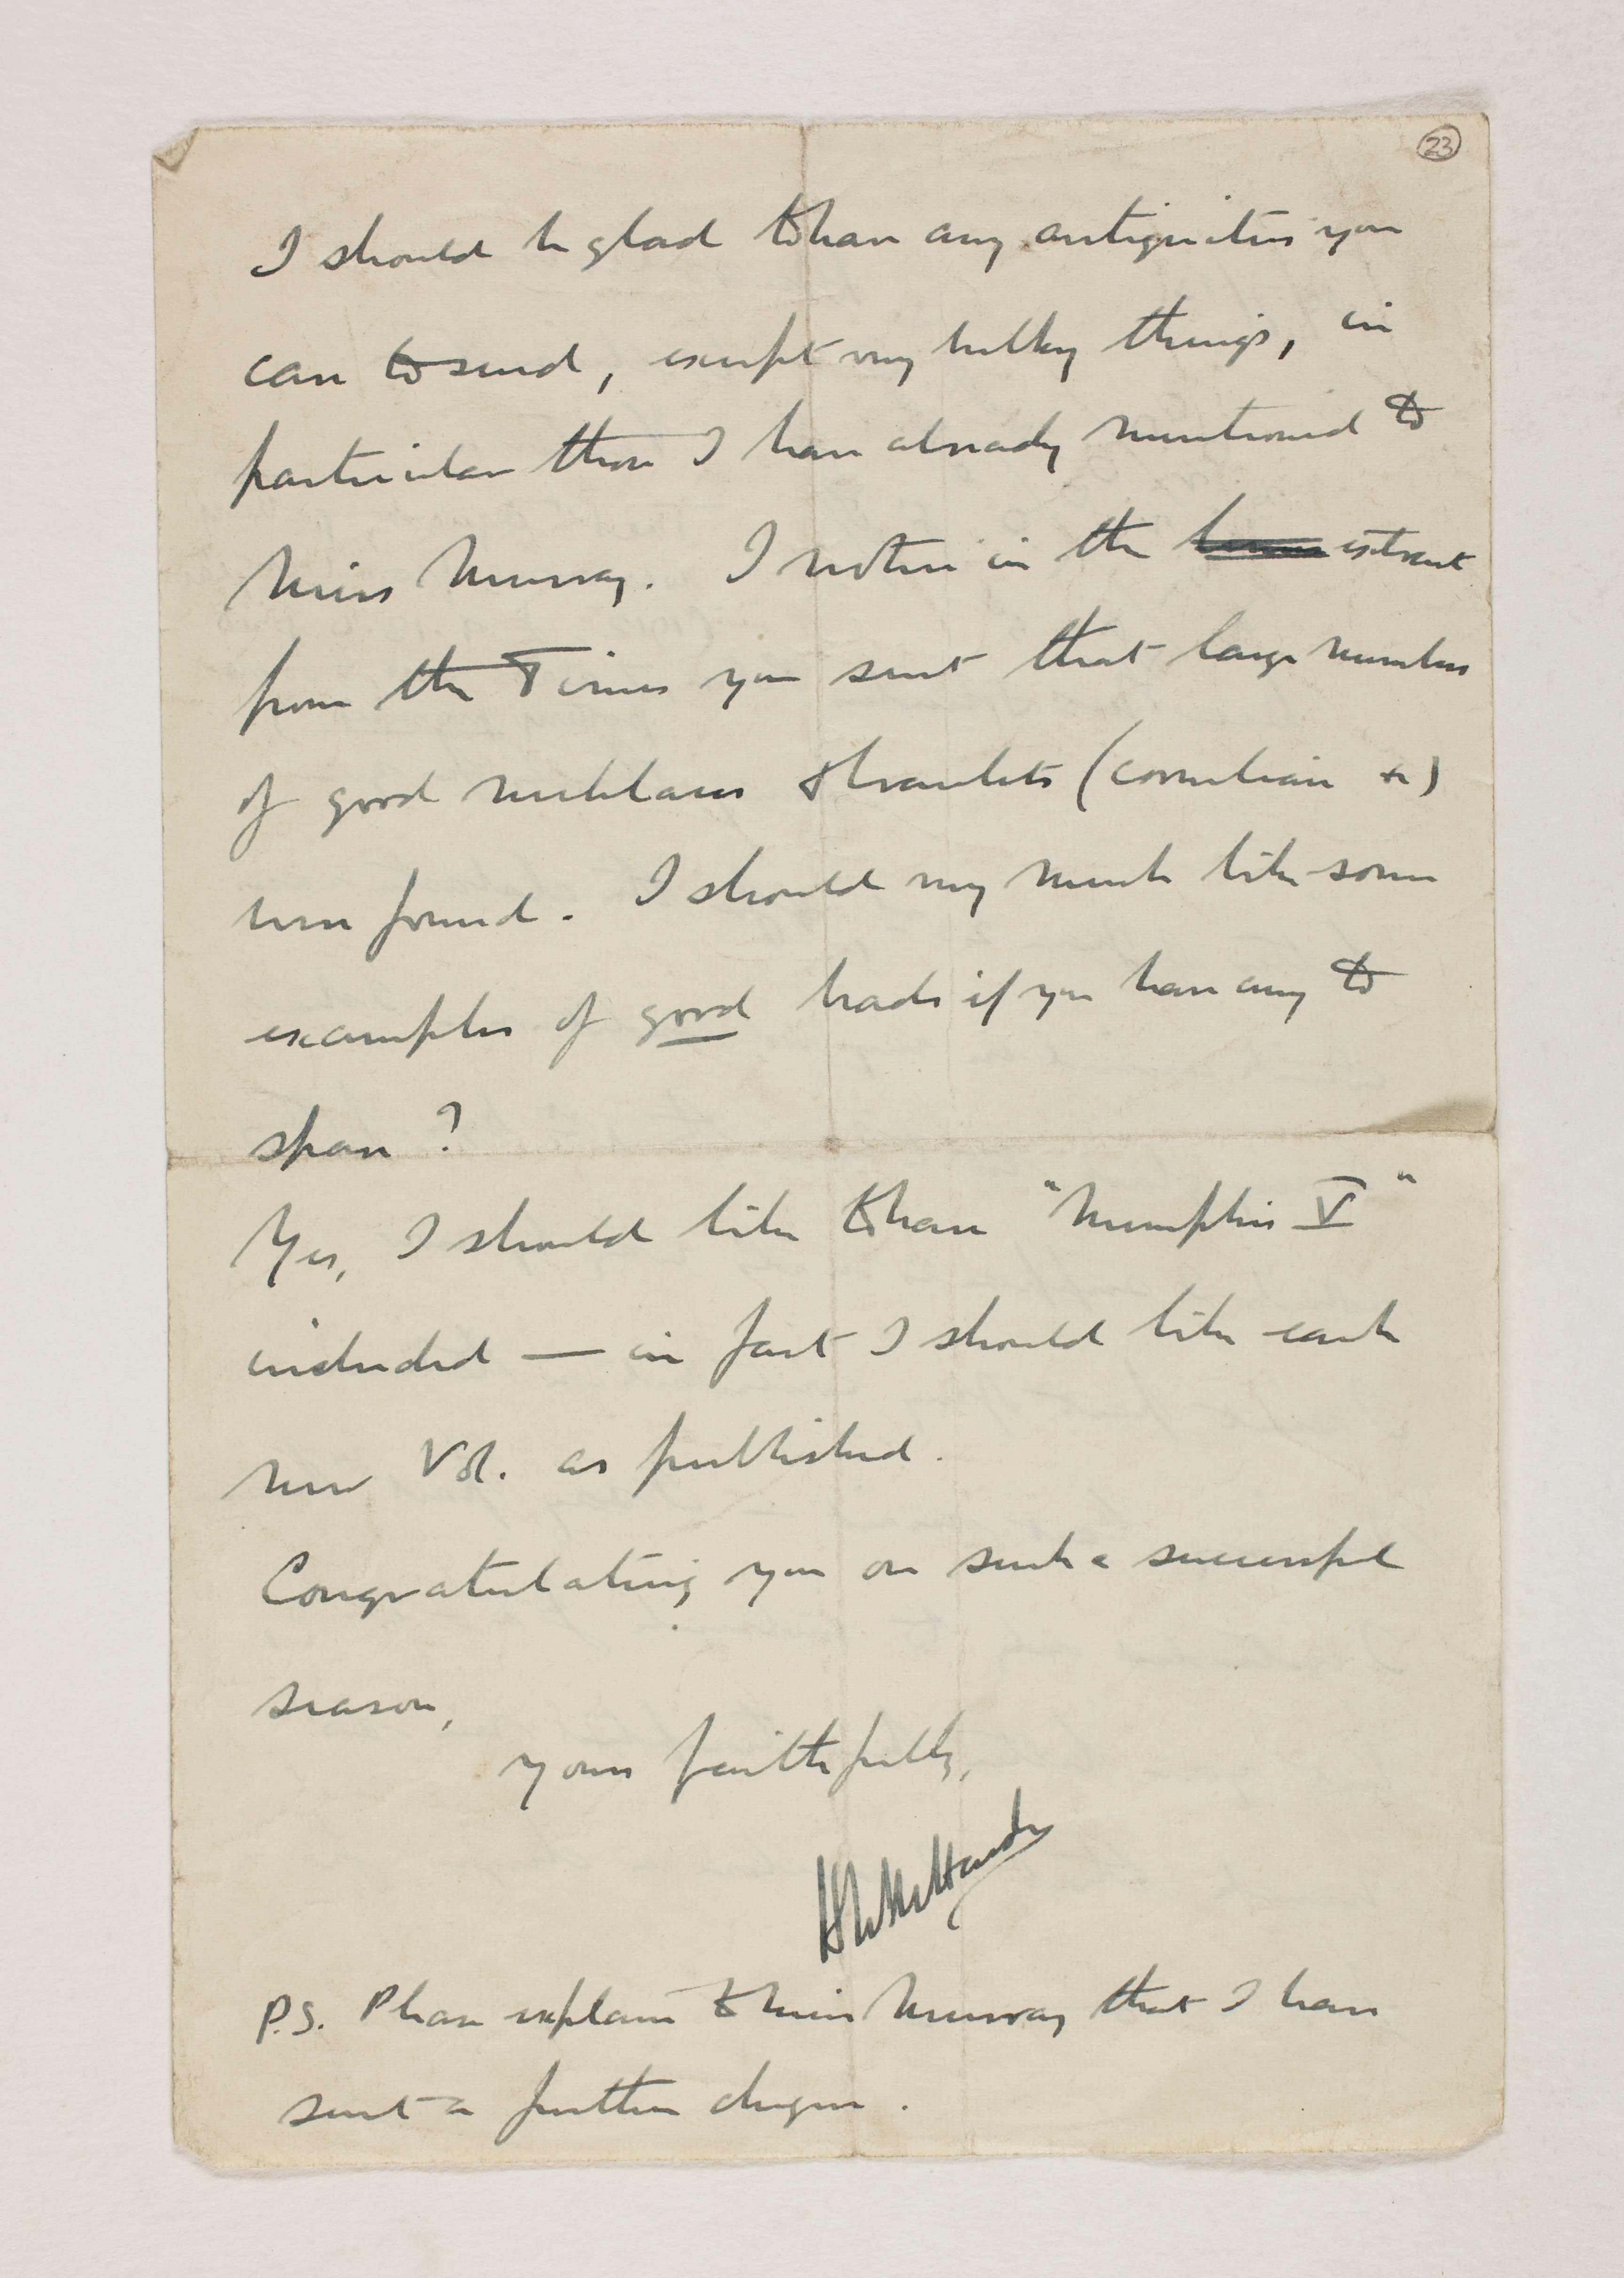 23
I should be glad to have any antiquities you
can to send, except very bulky things, in
particular those I have already mentioned to
Miss Murray. I notice in the extract
from the Times you sent that large numbers
of good necklaces & bracelets (cornelian &c)
were found. I should very much like some
examples of good beads if you have any to
spare?
Yes, I should like to have "Memphis V"
included — in fact I should like each
new Vol. as published.
Congratulating you on such a successful
season,
Yours faithfully,
P.S. Please explain to Miss Murray that I have
sent a further cheque.